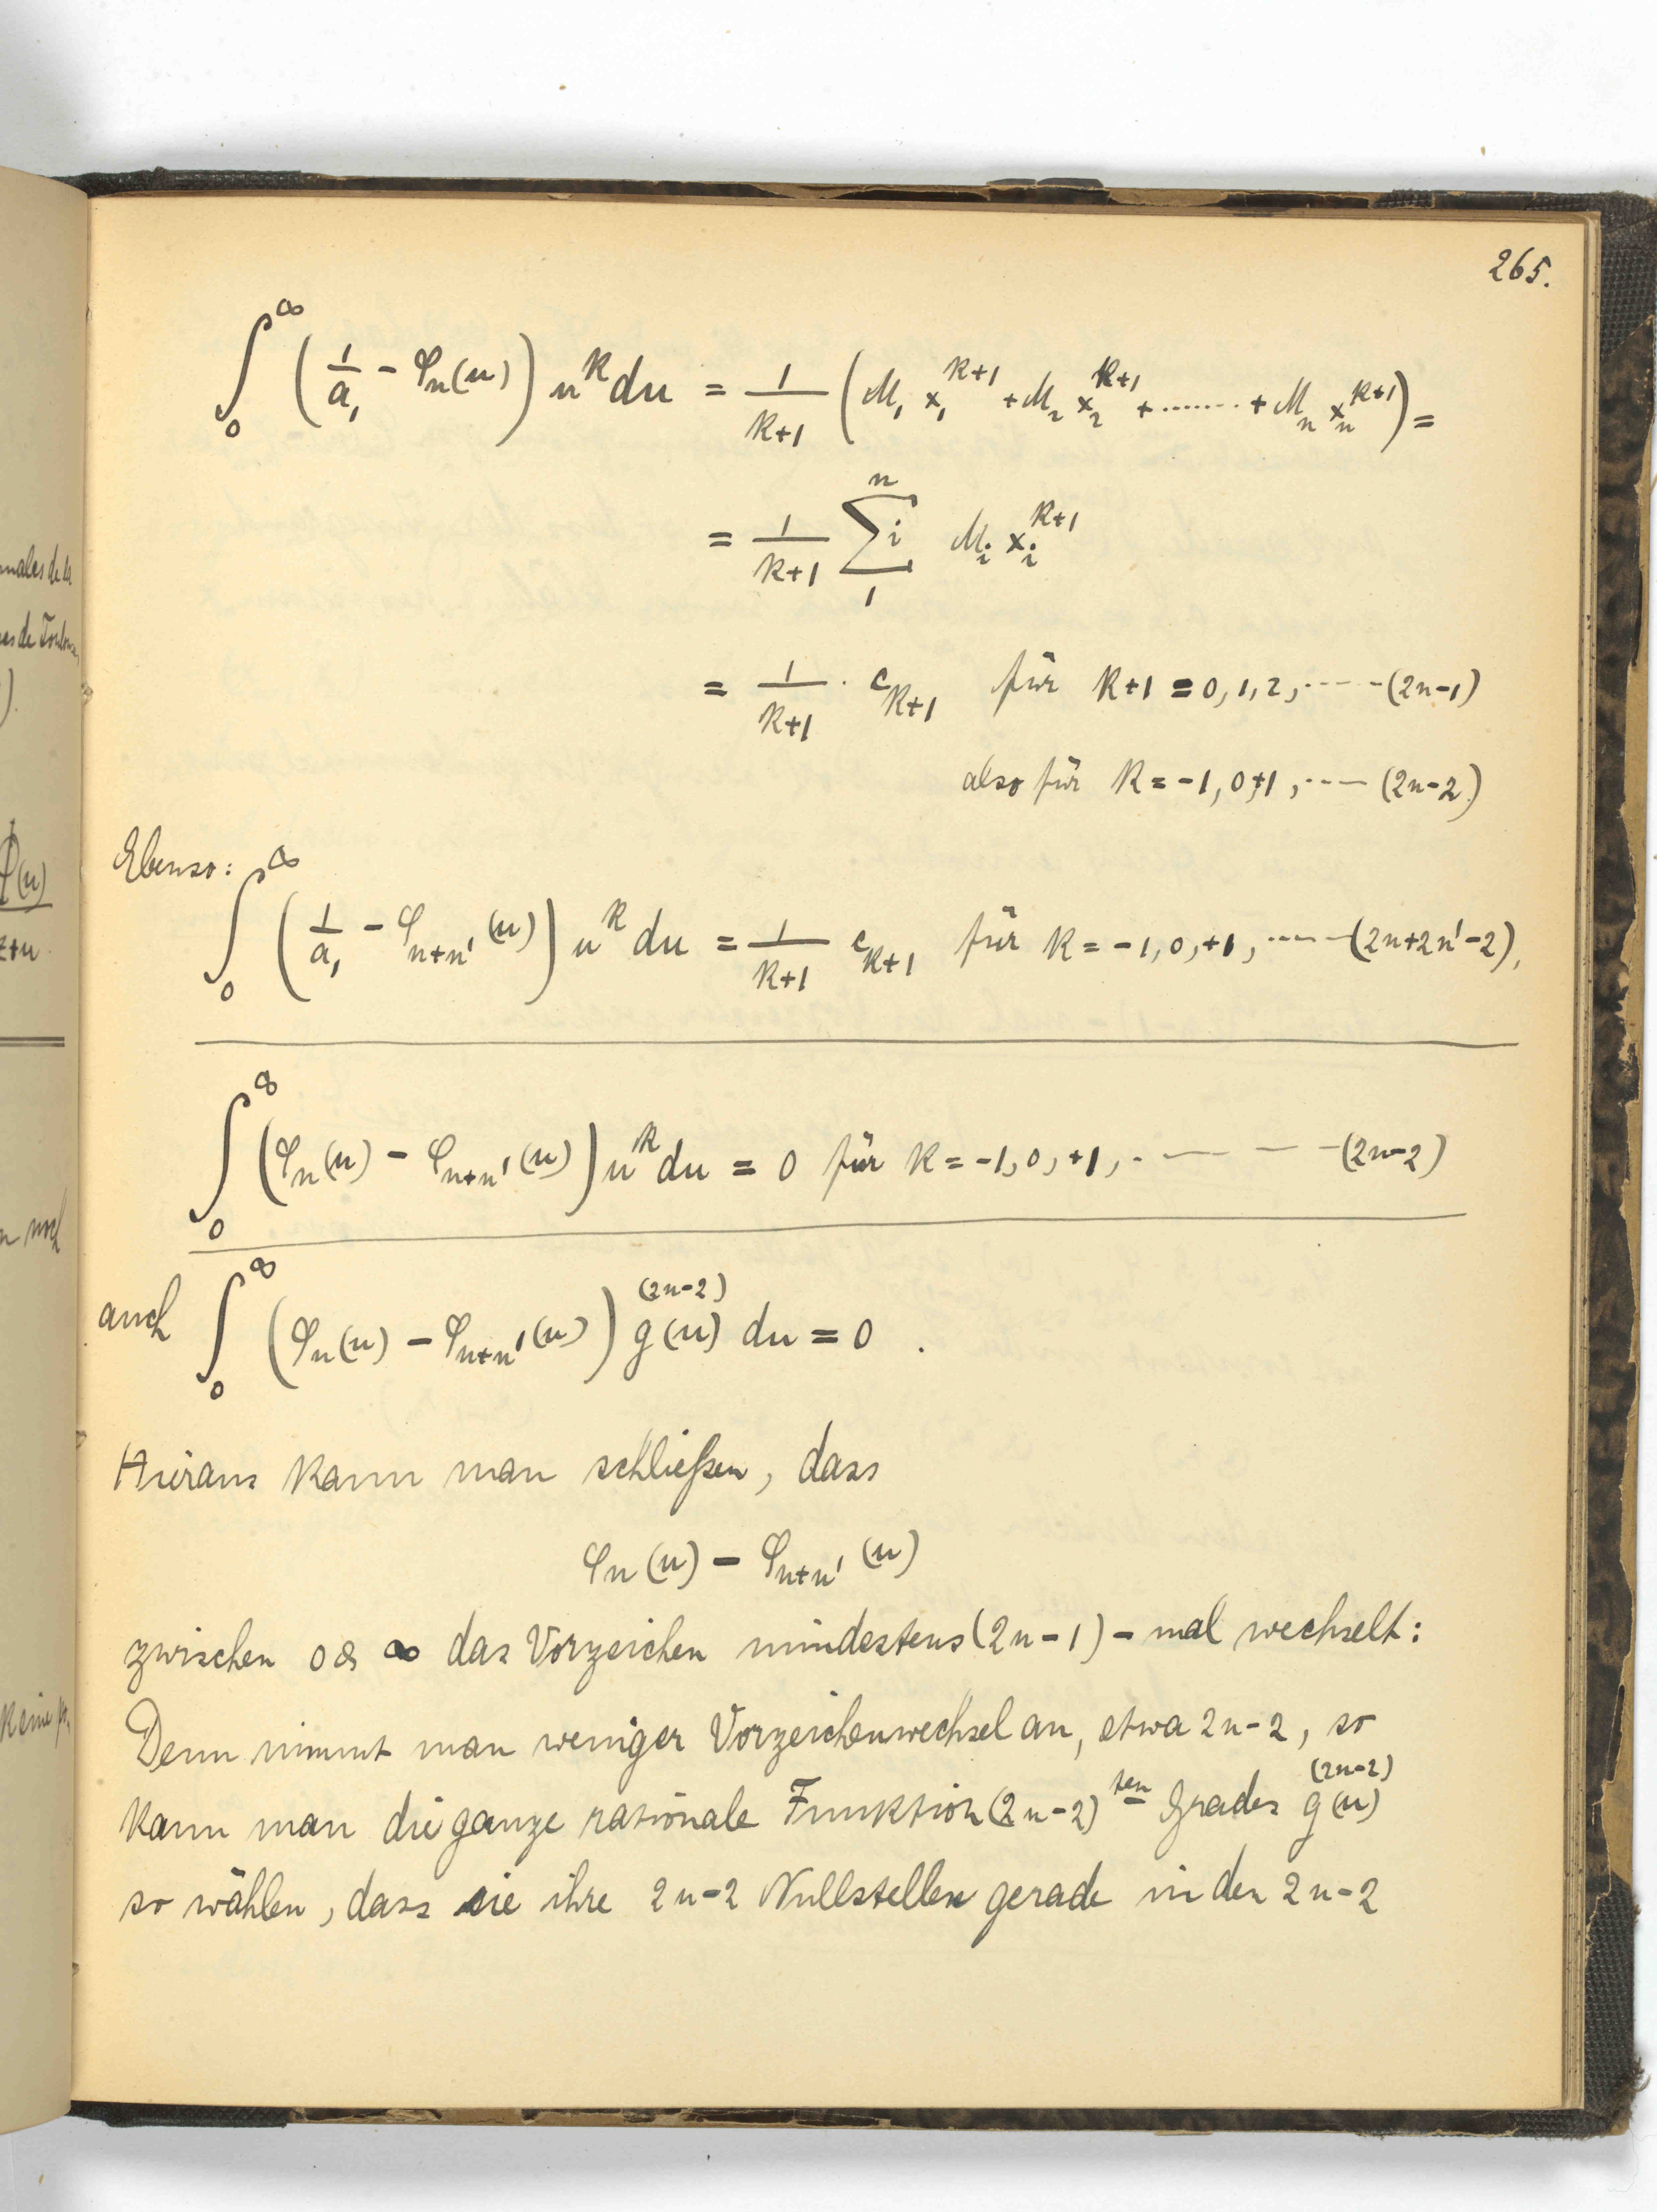 265.
∫₀^∞ (1/a₁ - φₙ(u)) u^k du = 1/(k+1) (M₁ x₁^(k+1) + M₂ x₂^(k+1) + ........ + Mₙ xₙ^(k+1)) =
= 1/(k+1) ∑ᵢ₁ⁿ Mᵢ xᵢ^(k+1)
= 1/(k+1) · c_(k+1) für k+1 = 0, 1, 2, ---- (2n-1)
also für k = -1, 0, +1, ---- (2n-2)
Ebenso:
∫₀^∞ (1/a₁ - φ_(n+n')(u)) u^k du = 1/(k+1) c_(k+1) für k = -1, 0, +1, ---- (2n+2n'-2),
∫₀^∞ (φₙ(u) - φ_(n+n')(u)) u^k du = 0 für k = -1, 0, +1, ---- (2n-2)
auch ∫₀^∞ (φₙ(u) - φ_(n+n')(u)) g^(2n-2)(u) du = 0.
Hieraus kann man schließen, dass
φₙ(u) - φ_(n+n')(u)
zwischen 0 & ∞ das Vorzeichen mindestens (2n-1) - mal wechselt:
Denn nimmt man weniger Vorzeichenwechsel an, etwa 2n-2, so
kann man die ganze rationale Funktion (2n-2)ten Grades g^(2n-2)(u)
so wählen, dass sie ihre 2n-2 Nullstellen gerade in den 2n-2
nales de la
es de Toulouse
).
Φ(u)
z+u
n noch
keine